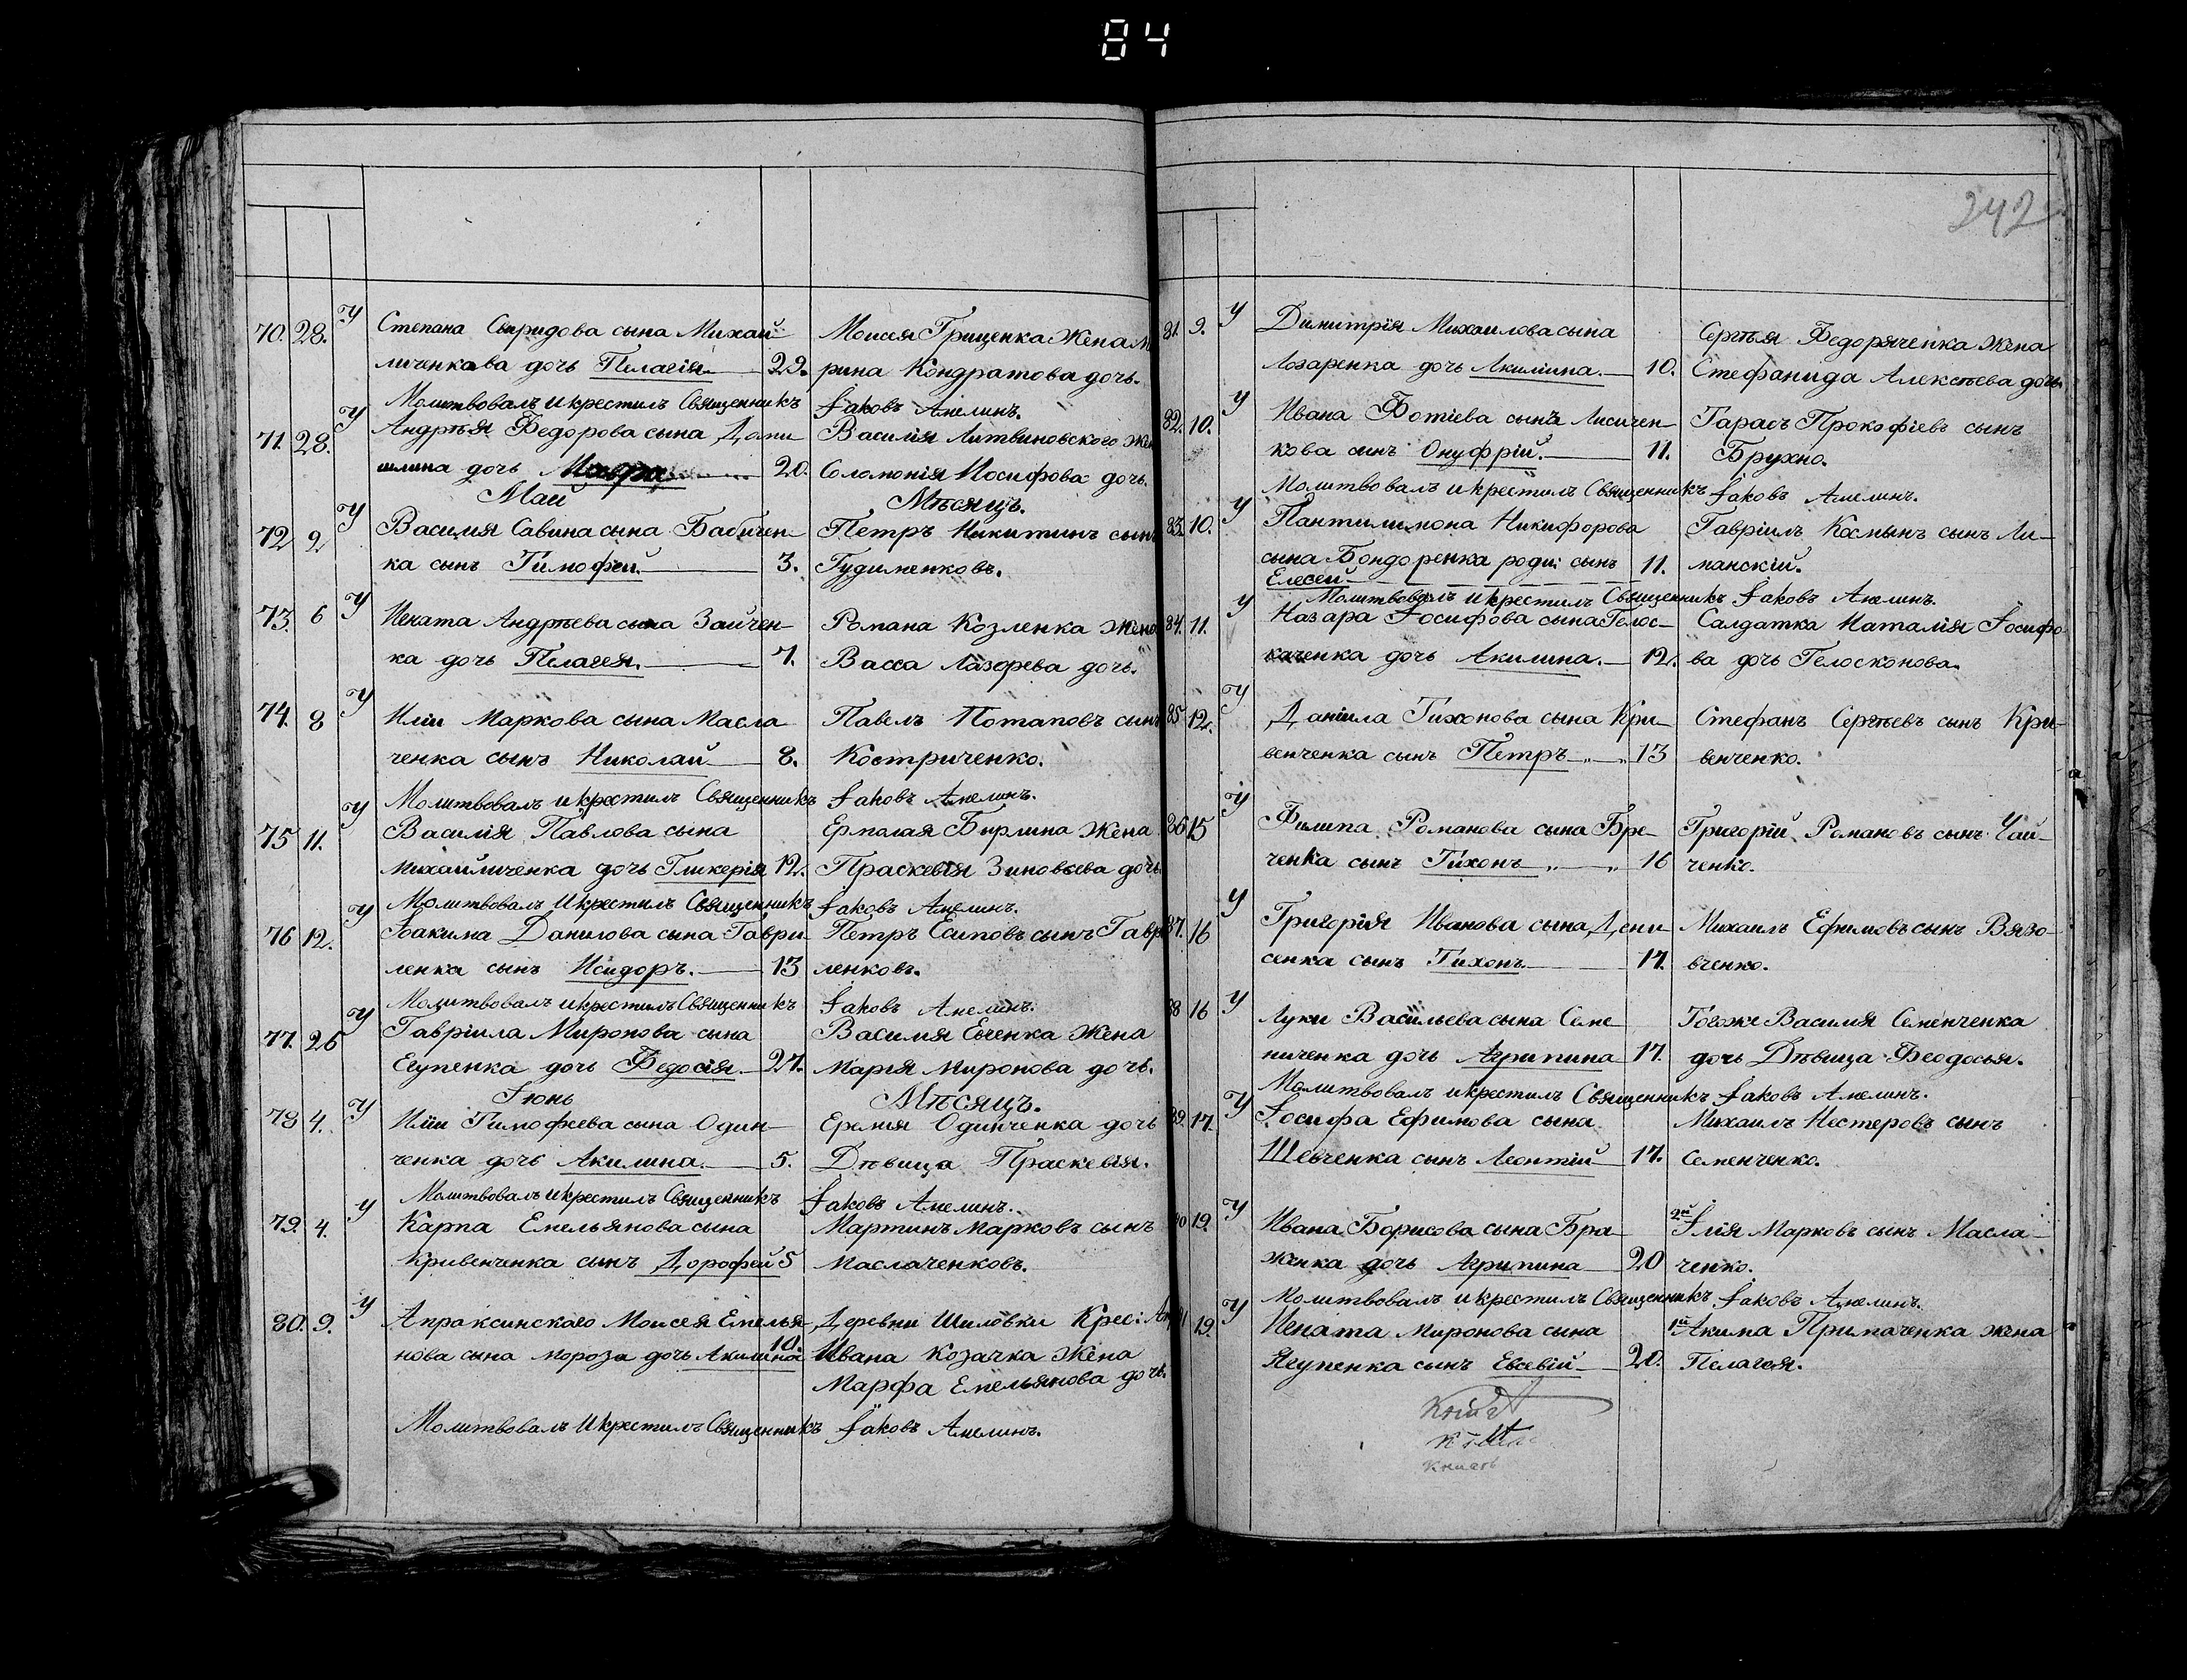 84
70. 28. У Степана Свиридова сына Михай- Моисея Гриценка жена М
личенкова дочь Пелагія. 29. рина Кондратова дочь.
Молитвовалъ и крестилъ Священникъ Іаковъ Амелинъ.
71. 28. У Андрѣя Федорова сына Дани Василія Литвиновского жен
шлина дочь Мавра 20. Соломонія Иосифова дочь.
Май Мѣсяцъ.
72 2 У Василия Савина сына Бабичен- Петръ Никитинъ сынъ
ка сынъ Тимофей. 3. Гудименковъ.
73. 6 У Игната Андрѣева сына Зайчен- Романа Козленка жена
ка дочь Пелагея. 7. Васса Лазорева дочь.
74. 8 У Иліи Маркова сына Масла- Павелъ Потаповъ сынъ
ченка сынъ Николай 8. Костриченко.
Молитвовалъ и крестилъ Священникъ Іаковъ Амелинъ.
75 11. У Василія Павлова сына Ермолая Бирлина жена
михайличенка дочь Гликерія 12. Праскевія Зиновьева дочь
Молитвовалъ и крестилъ Священникъ Іаковъ Амелинъ.
76 12. У Іоакима Данилова сына Гаври- Петръ Есиповъ сынъ Гавр
ленка сынъ Исидоръ. 13 ленковъ.
Молитвовалъ и крестилъ Священникъ Іаковъ Амелинъ.
77. 26 У Гавріила Миронова сына Василия Евченка жена
Егупенка дочь Федосія. 27. Марія Миронова дочь.
Іюнь Мѣсяцъ.
78 4. У Иліи Тимофеева сына Один- Еремія Одинченка дочь
ченка дочь Акилина. 5. Дѣвица Праскевія.
Молитвовалъ и крестилъ Священникъ Іаковъ Амелинъ.
79. 4. У Карпа Емельянова сына Мартинъ Марковъ сынъ
Кривенченка сынъ Дорофей 5 Маслаченковъ.
80. 9. У Апраксинскаго Моисея Емелья- Деревни Шиловки Крес: Ап
нова сына мороза дочь Акилина 10. Ивана Козачка жена
Марфа Емельянова дочь.
Молитвовалъ и крестилъ Священникъ Іаковъ Амелинъ.
242
81. 9. У Димитрія Михаилова сына Сергѣя Федоряченка жена
Лазаренка дочь Акилина. 10. Стефанида Алексѣева дочь.
82. 10. У Ивана Фотіева сына Лисичен- Тарасъ Прокофіевъ сынъ
кова сынъ Онуфрій. 11. Брухно.
Молитвовалъ и крестилъ Священникъ Іаковъ Амелинъ.
83. 10. У Пантилимона Никифорова Гавріилъ Космынъ сынъ Ли-
сына Бондоренка роди: сынъ 11. манскій.
Елесей
Молитвовалъ и крестилъ Священникъ Іаковъ Амелинъ.
84. 11. У Назара Іосифова сына Голос- Салдатка Наталія Іосифо-
каченка дочь Акилина. 12. ва дочь Голосконова.
85 12. У Даніила Тихонова сына Кри- Стефанъ Сергѣевъ сынъ Кри-
венченка сынъ Петръ 13 венченко.
86 15 У Филипа Романова сына Бре- Григорій Романовъ сынъ Чай-
ченка сынъ Тихонъ 16 ченко.
87. 16 У Григорія Иванова сына Дени- Михаилъ Ефимовъ сынъ Вязо-
сенка сынъ Тихонъ. 17. вченко.
88 16 У Луки Васильева сына Семе- Тогоже Василия Семенченка
ниченка дочь Агрипина 17. дочь Дѣвица Феодосья.
Молитвовалъ и крестилъ Священникъ Іаковъ Амелинъ.
89. 17. У Іосифа Ефимова сына Михаилъ Нестеровъ сынъ
Шевченка сынъ Леонтій 17. Семенченко.
90 19. У Ивана Борисова сына Бра- 2й Ілія Марковъ сынъ Масла-
женка дочь Агрипина 20 ченко.
Молитвовалъ и крестилъ Священникъ Іаковъ Амелинъ.
91 19. У Игната Миронова сына 1й Акима Примаченка жена
Ягупенка сынъ Евсевій 20. Пелагея.